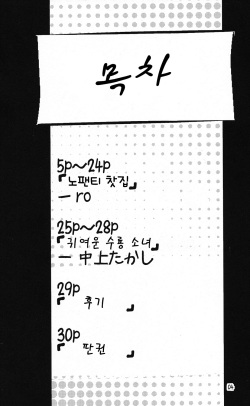 목차
5p～24p
『노팬티 찻집』
ー ro
25p～28p
『귀여운 수룡 소녀』
ー 中上たかし
29p
『후기』
30p
『판권』